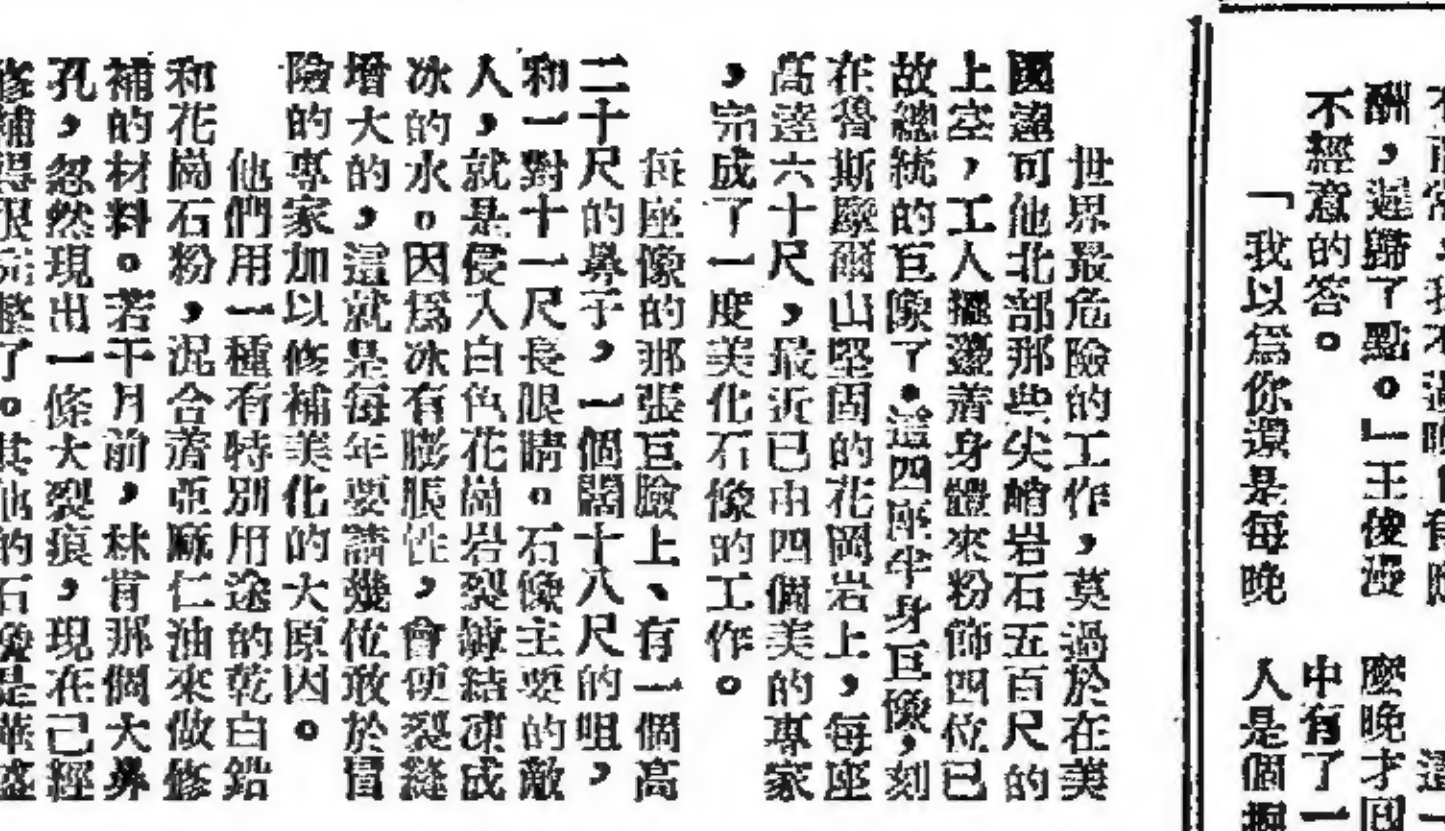 不經意的答。
「我以爲你還是每晚
世界最危險的工作,莫過於在美
國達可他北部那些尖峭岩石五百尺的
上空,工人擺盪着身體來粉飾四位已
故總統的巨像了。這四座半身巨像,刻
在魯斯摩爾山堅固的花岡岩上,每座
高達六十尺,最近已由四個美的專家
,完成了一度美化石像的工作。
每座像的那張巨臉上、有一個高
二十尺的鼻子,一個闊十八尺的咀,
和一對十一尺長眼睛。石像主要的敵
人,就是侵入白色花崗岩裂縫結凍成
冰的水。因爲冰有膨脹性,會使裂縫
增大的,這就是每年要請幾位敢於冒
險的專家加以修補美化的大原因。
他們用一種有特別用途的乾白鉛
和花崗石粉,混合着亞麻仁油來做修
補的材料。若干月前,林肯那個大鼻
孔,忽然現出一條大裂痕,現在已經
修補得很完整了。其他的石像是華盛